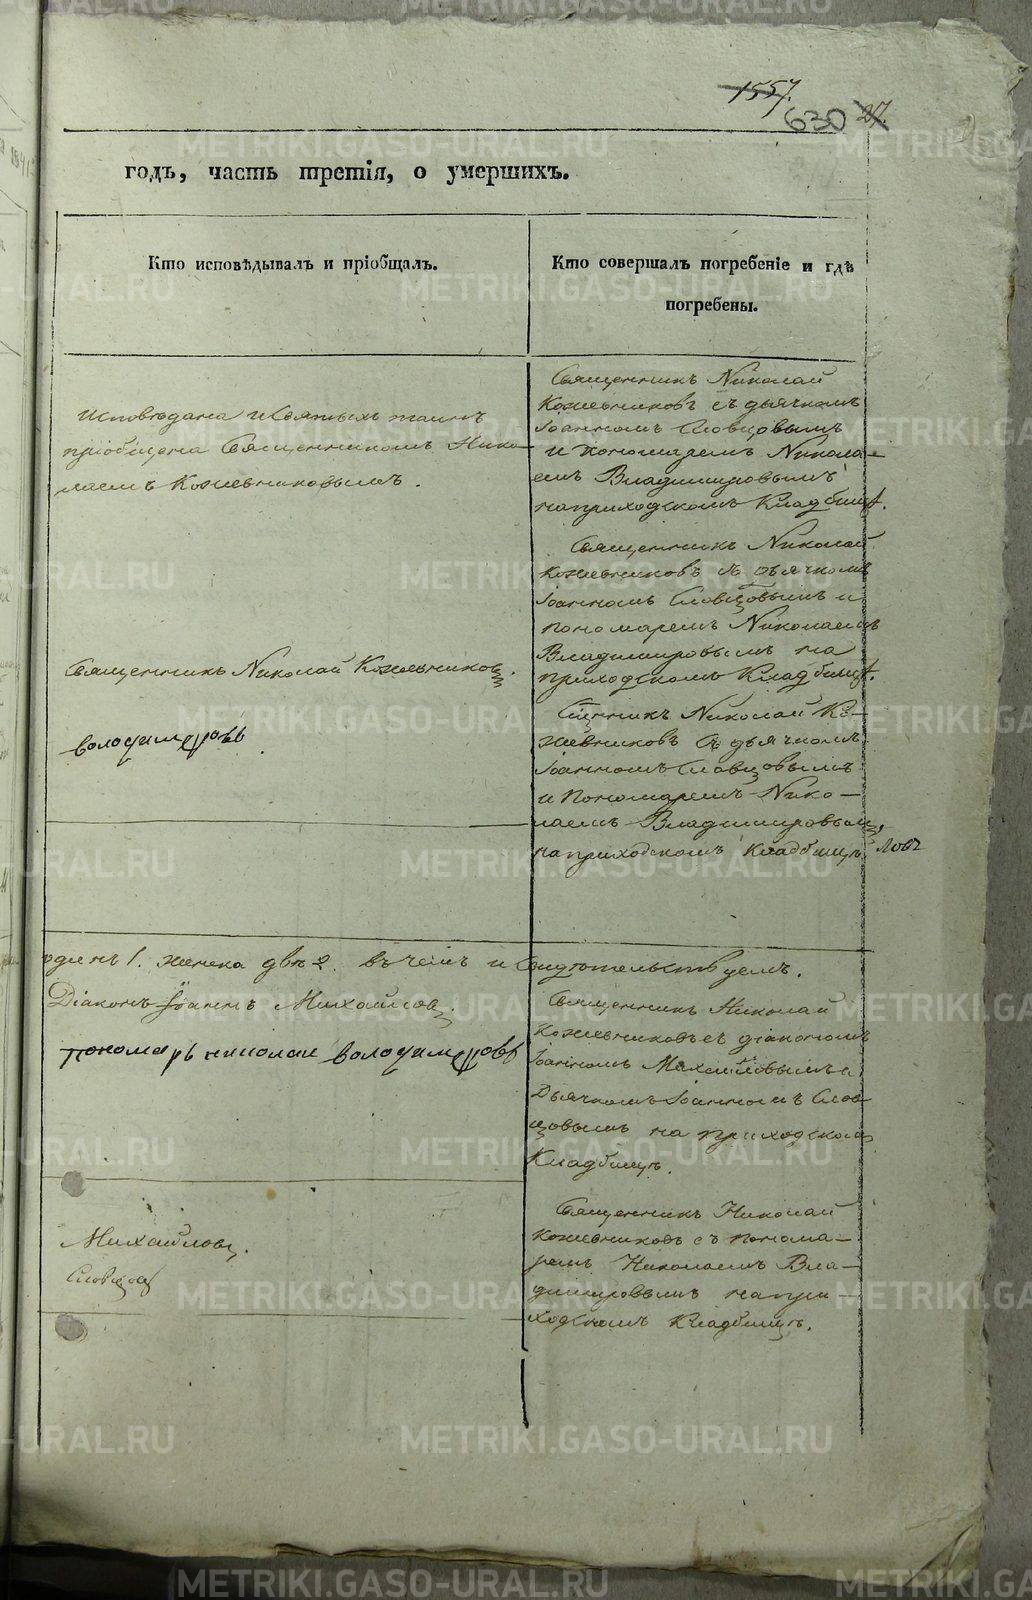 1557.
630 27.
годъ, часть третія, о умершихъ.
Кто исповѣдывалъ и пріобщалъ.
Кто совершалъ погребеніе и гдѣ
погребены.
Исповѣдана и Святыхъ таинъ
пріобщена Священникомъ Нико-
лаемъ Кожевниковымъ.
Священникъ Николай
Кожевниковъ съ дьячкомъ
Іоанномъ Словцовымъ
и пономаремъ Никола-
емъ Владимировымъ
на приходскомъ Кладбищѣ.
Священникъ Николай Кожевниковъ.
володимеровъ
Священникъ Николай
Кожевниковъ съ дьячкомъ
Іоанномъ Словцовымъ и
пономаремъ Николаемъ
Владимировымъ на
приходскомъ Кладбищѣ.
Сщнникъ Николай Ко-
жевниковъ съ дьячкомъ
Іоанномъ Словцовымъ
и Пономаремъ Нико-
лаемъ Владимировым
на приходскомъ Кладбищѣ.
ловъ
одинъ 1. женска двѣ 2. въ чемъ и Свидѣтельствуемъ.
Діаконъ Іоаннъ Михайлов
пономарь николаи володимеровъ
Священникъ Николай
Кожевниковъ съ діакономъ
Іоанномъ Михайловымъ и
Дьячкомъ Іоанномъ Слов-
цовымъ на приходском
Кладбищѣ.
Михайловъ.
Словцов
Священникъ Николай
Кожевниковъ съ понома-
ремъ Николаемъ Вла-
димировымъ на при-
ходскомъ Кладбищѣ.
METRIKI.GASO-URAL.RU